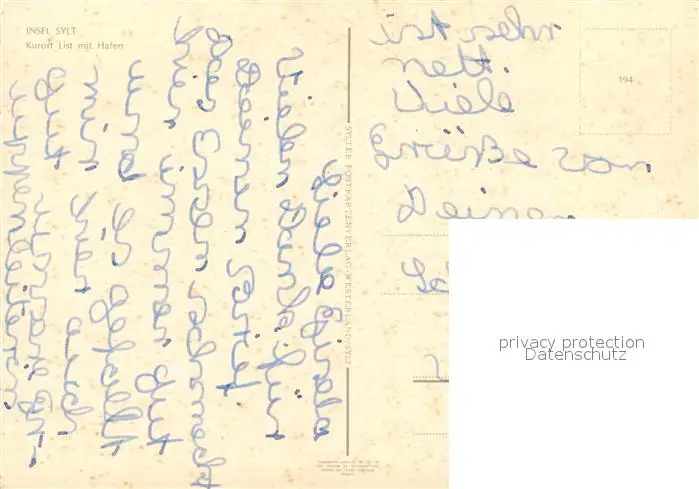 INSEL SYLT
Kurort List mit Hafen
194
SYLTER POSTKARTENVERLAG · WESTERLAND/SYLT
Liebe
Vielen Dank für
Deinen Brief
Das Essen schmeckt
hier immer gut
und Es gefällt
mir hier auch
gut unsere Gr-
uppenleiterin
ist sehr
nett.
Viele
Grüße von
Deiner
privacy protection
Datenschutz